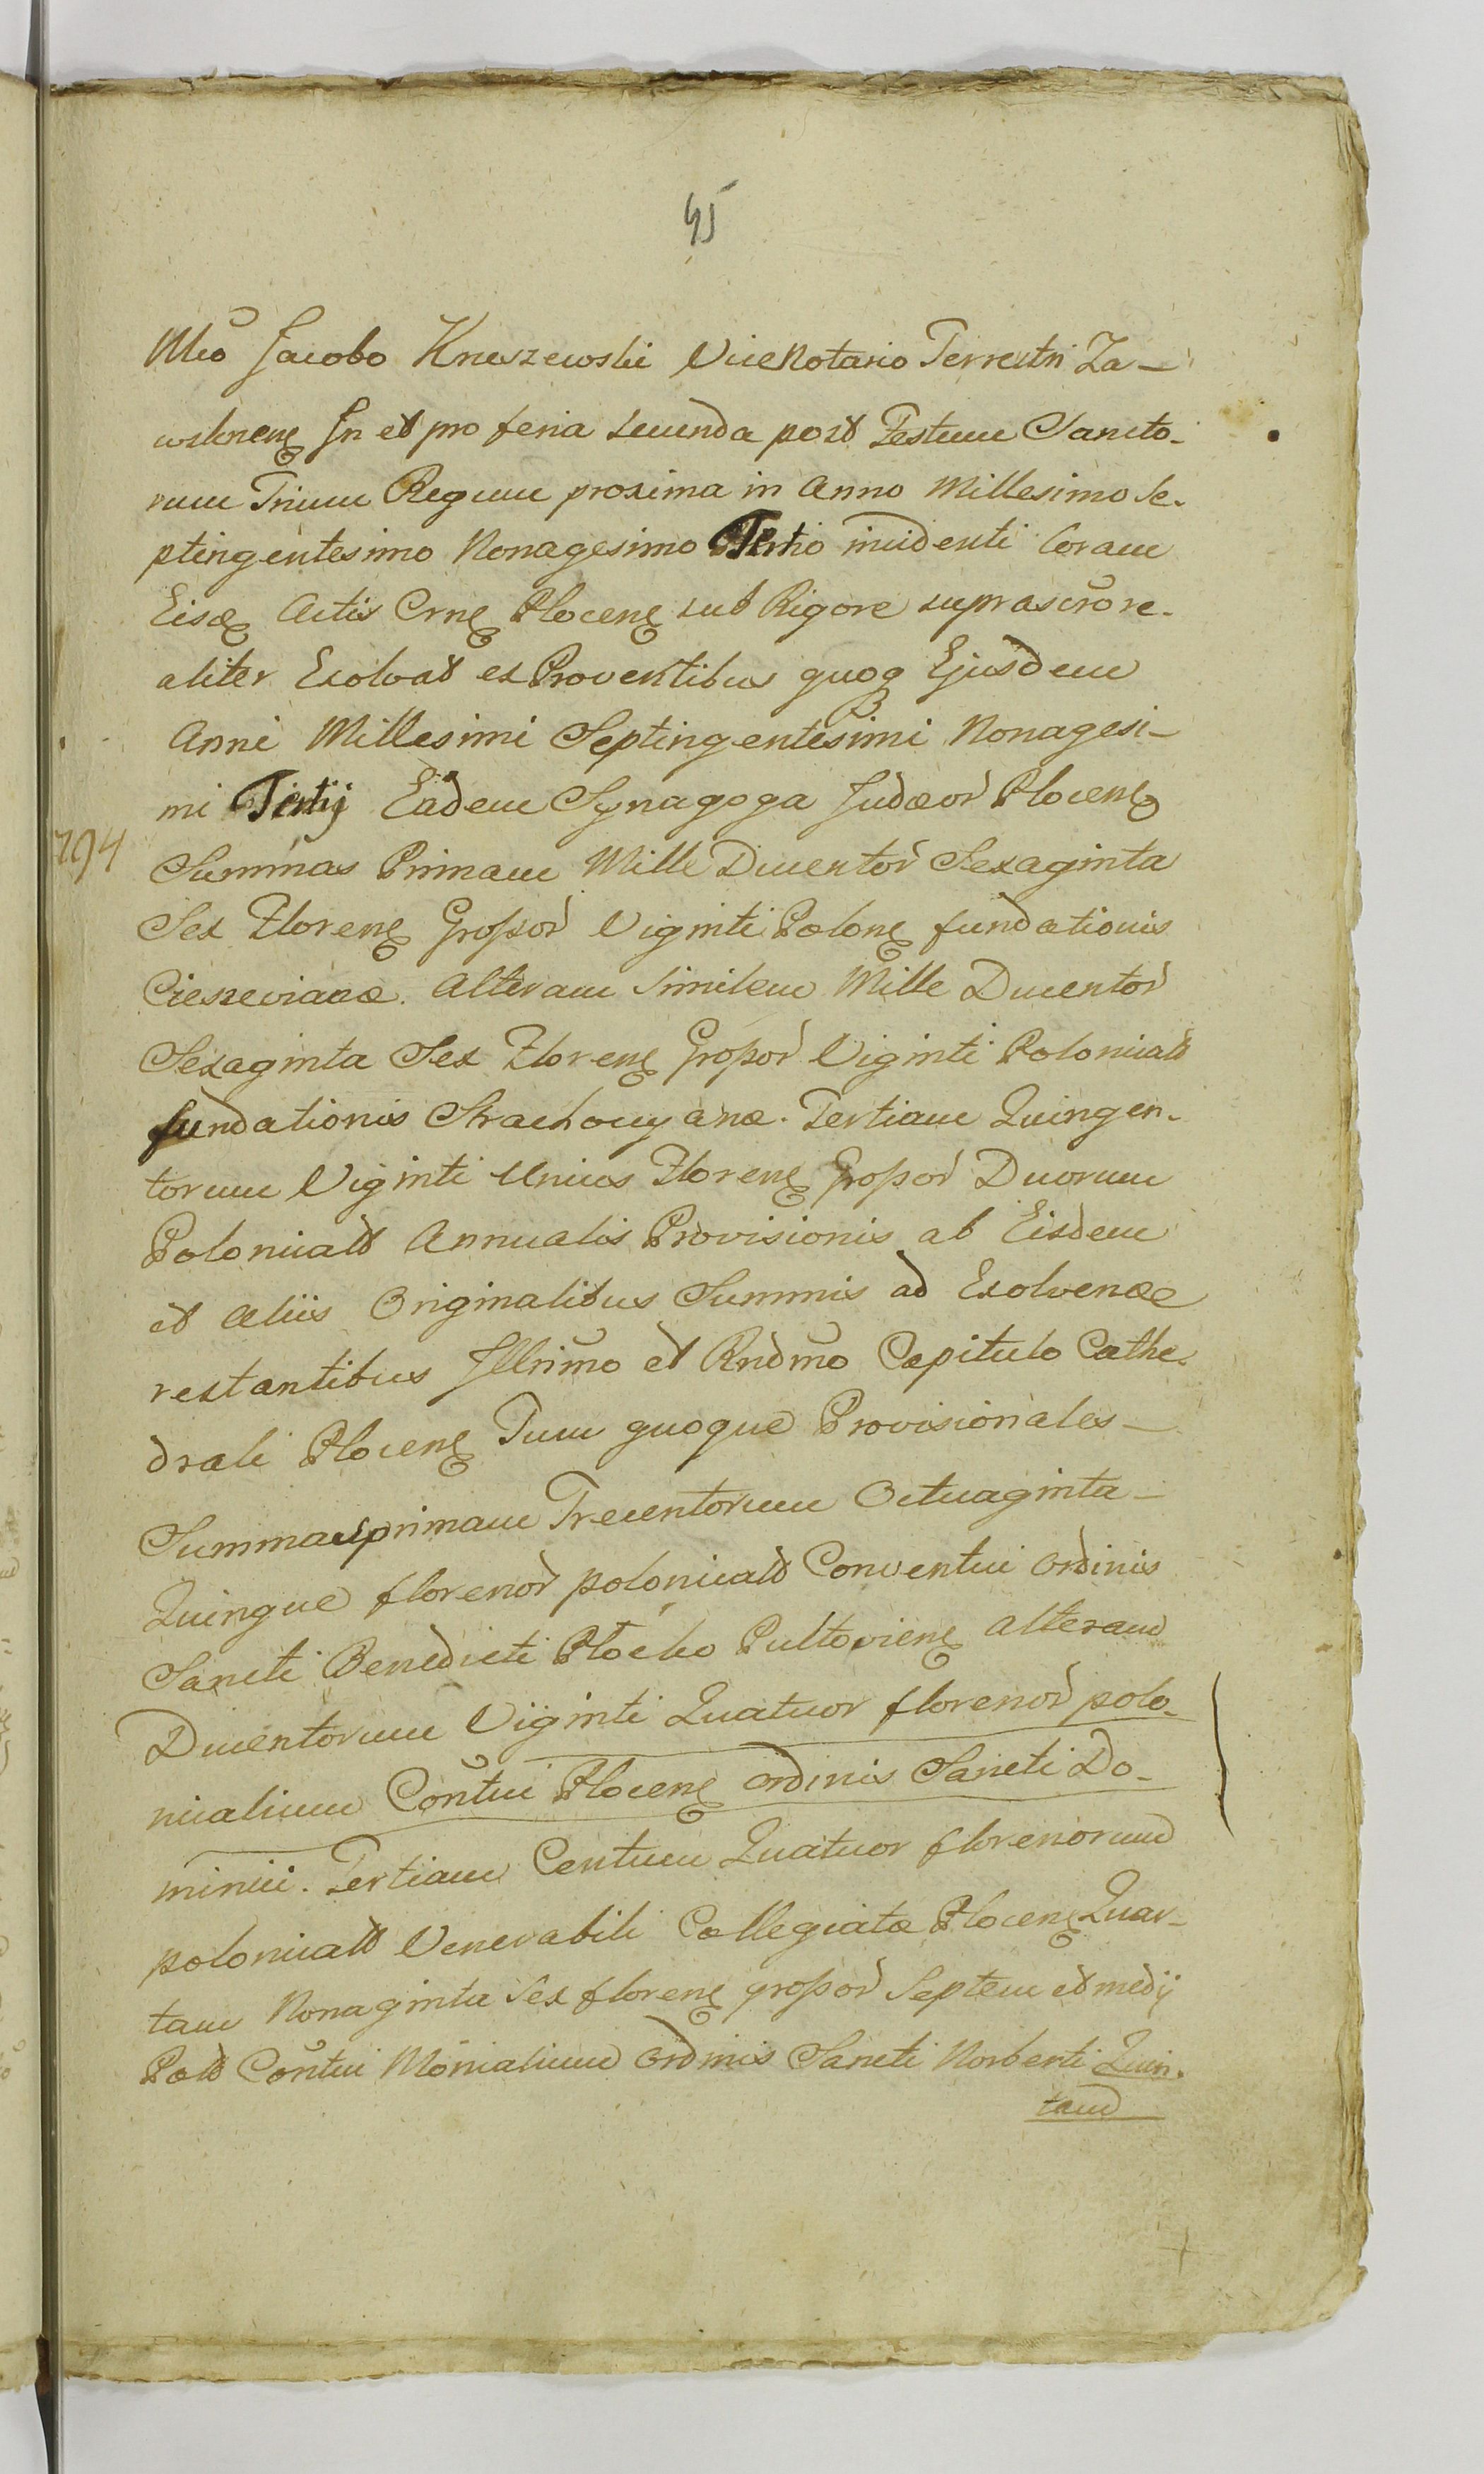 45
Mco Jacobo Kruszewski ViceNotario Terrestri Za-
wskrenę In et pro feria secunda post Festum Sancto-
rum Trium Regum proxima in Anno Millesimo Se-
ptingentesimo Nonagesimo Tertio incidenti Coram
Eisdę Actis Crnę Plocenę sub Rigore suprascrõ re-
aliter Exolvat ex Proventibus quoq Ejusdem
Anni Millesimi Septingentesimi Nonagesi-
mi Tertij Eadem Synagoga Judæor Plocenę
794
Summas Primam Mille Ducentor Sexaginta
Sex Florenę Grossor Viginti Polonę fundationis
Cieszevianæ. Alteram Similem Mille Ducentor
Sexaginta Sex Florenę Grossor Viginti Polonicalt
fundationis Strachocyanæ. Tertiam Quingen-
torum Viginti Unius Florenę Grossor Duorum
Polonicalt Annualis Provisionis ab Eisdem
et Aliis Originalibus Summis ad Exolvend
restantibus Illrimo et Rndmo Capitulo Cathe-
drali Plocenę Tum quoque Provisionales-
Summas primam Trecentorum Octuaginta-
Quinque florenor polonicalt Conventui Ordinis
Sancti Benedicti Plocko Pultovienę Alteram
Ducentorum Viginti Quatuor florenor polo-
nicalium Contui Plocenę Ordinis Sancti Do-
minici. Tertiam Centum Quatuor florenorum
polonicalt Venerabili Collegiatæ Plocenę Quar-
tam Nonaginta Sex florenę grossor Septem et medij
Polt Contui Monialium Ordinis Sancti Norberti Quin-
tam